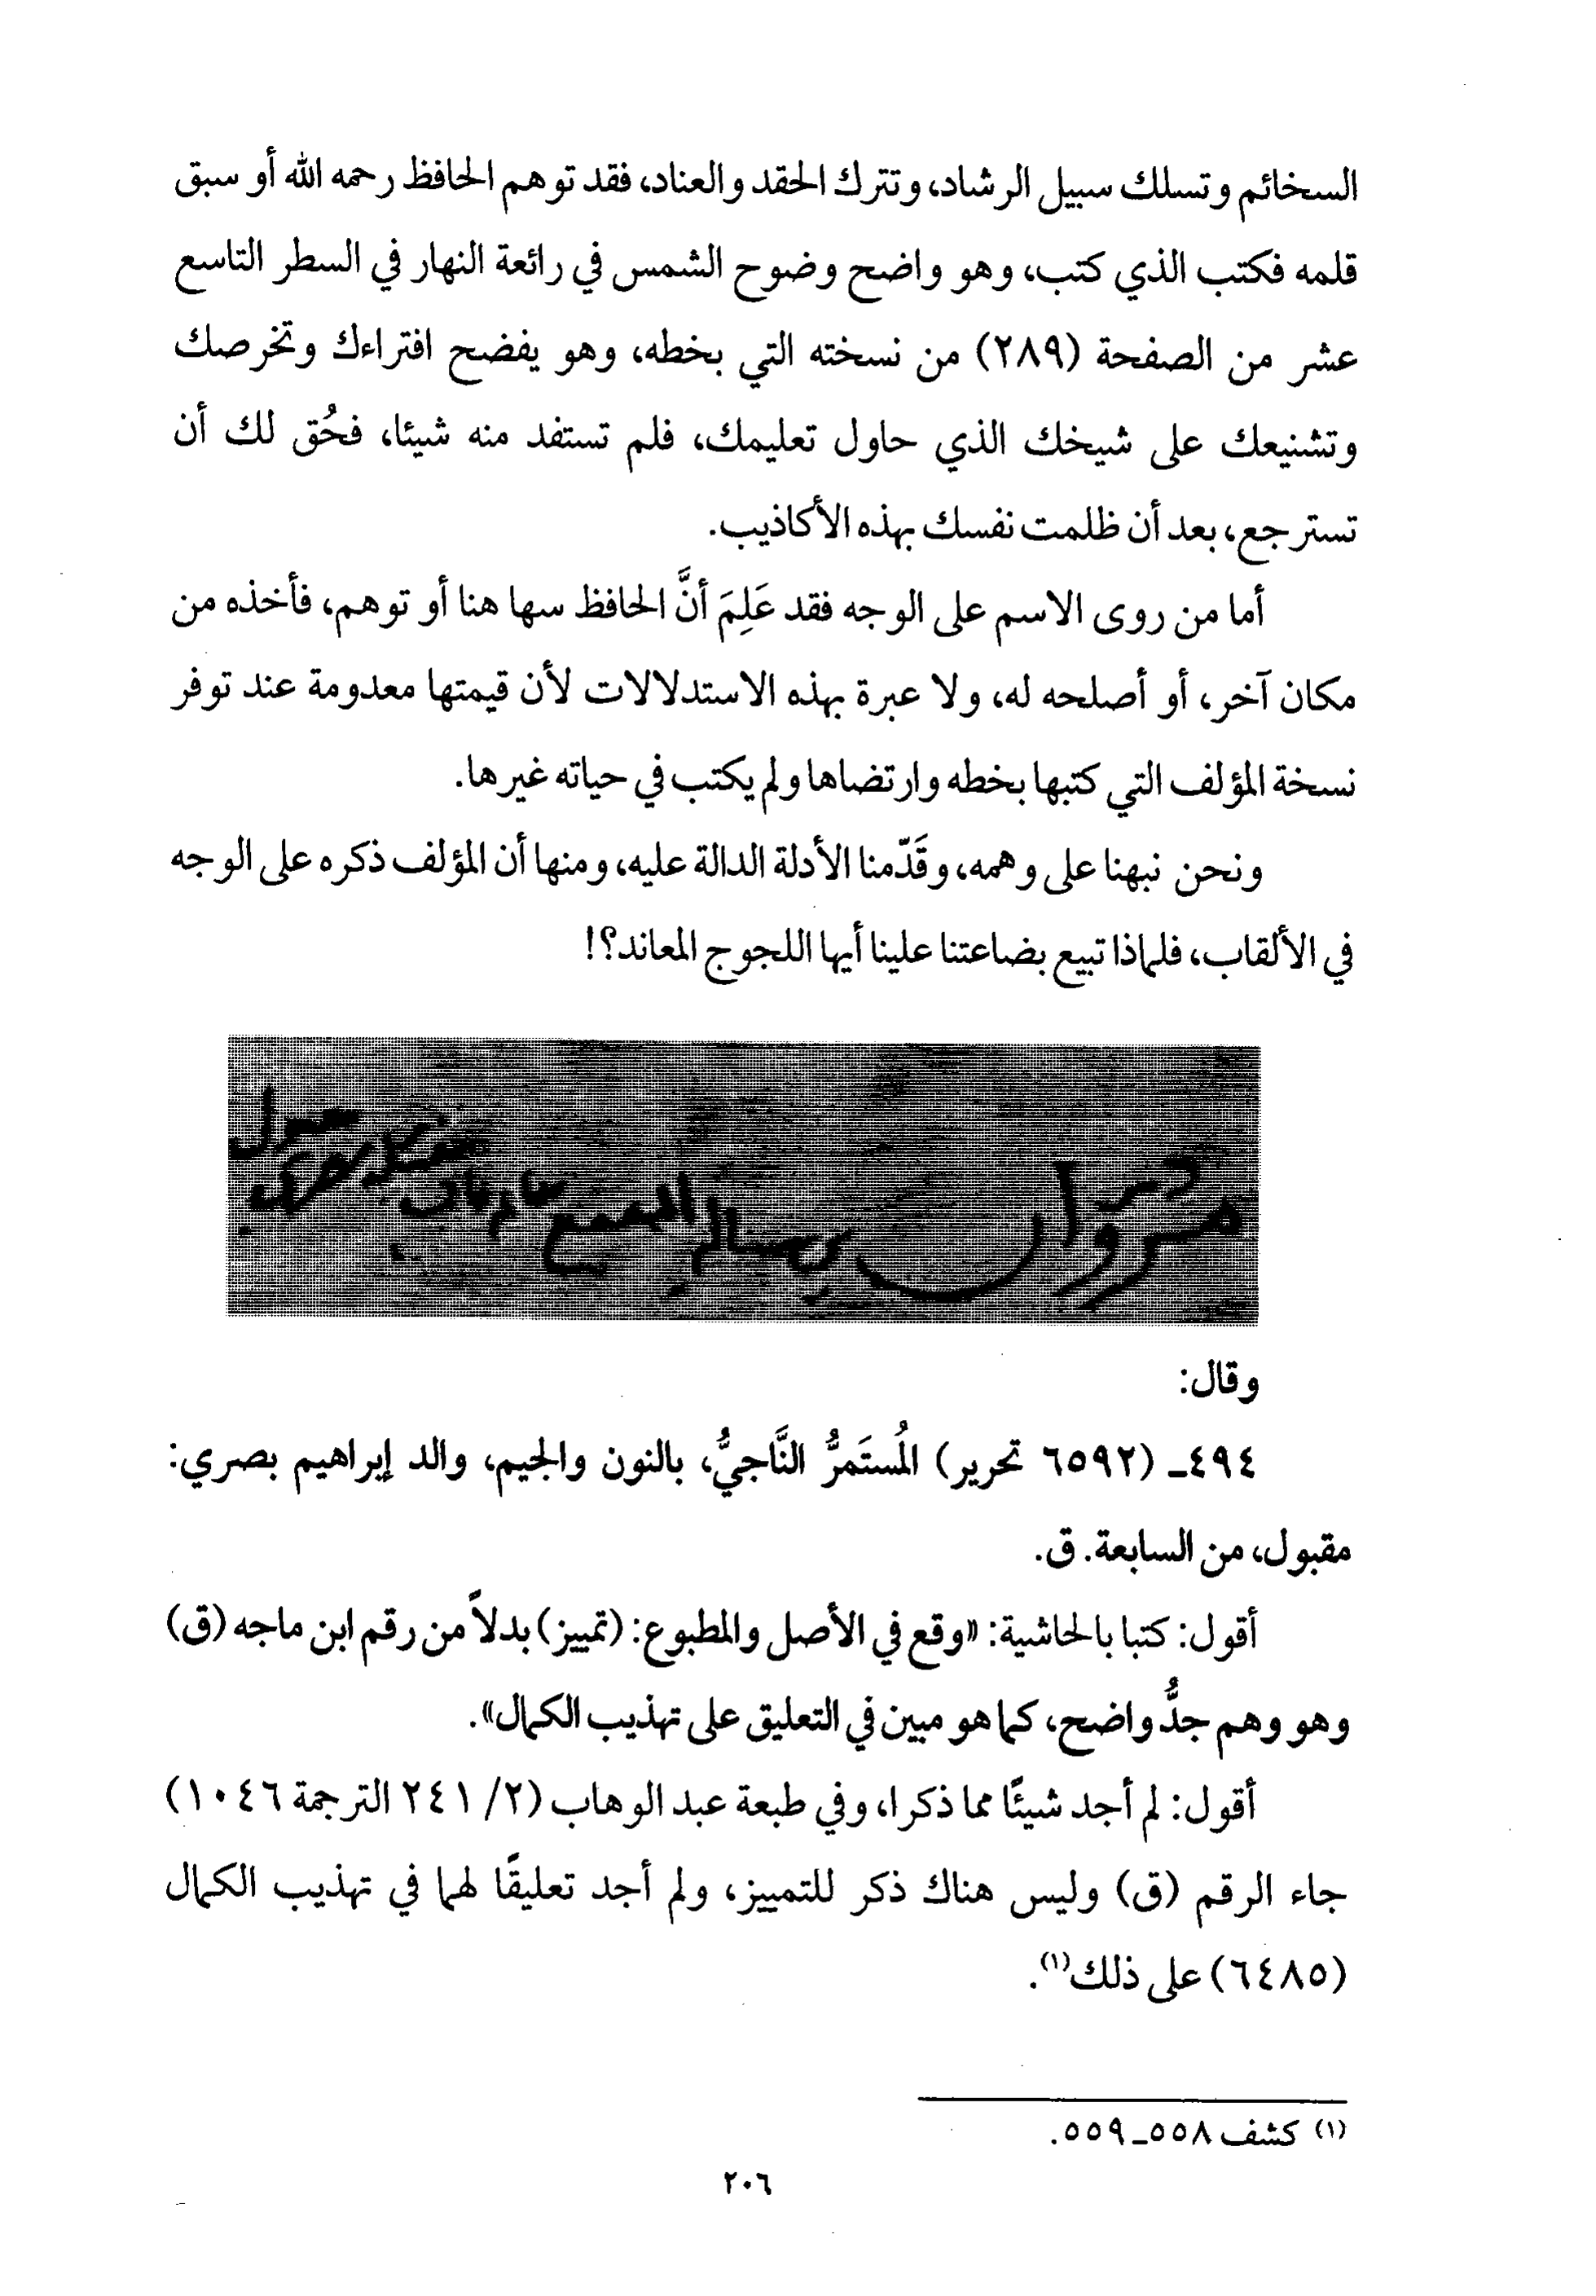 السخائم وتسلك سبيل الرشاد، وتترك الحقد والعناد، فقد توهم الحافظ رحمه الله أو سبق
قلمه فكتب الذي كتب، وهو واضح وضوح الشمس في رائعة النهار في السطر التاسع
عشر من الصفحة (٢٨٩) من نسخته التي بخطه، وهو يفضح افتراءك وتخرصك
وتشنيعك على شيخك الذي حاول تعليمك، فلم تستفد منه شيئا، فحُق لك أن
تسترجع، بعد أن ظلمت نفسك بهذه الأكاذيب.
أما من روى الاسم على الوجه فقد عَلِمَ أنَّ الحافظ سها هنا أو توهم، فأخذه من
مكان آخر، أو أصلحه له، ولا عبرة بهذه الاستدلالات لأن قيمتها معدومة عند توفر
نسخة المؤلف التي كتبها بخطه وارتضاها ولم يكتب في حياته غيرها.
ونحن نبهنا على وهمه، وقَدّمنا الأدلة الدالة عليه، ومنها أن المؤلف ذكره على الوجه
في الألقاب، فلماذا تبيع بضاعتنا علينا أيها اللجوج المعاند؟!
وقال:
٤٩٤ـ (٦٥٩٢ تحرير) المُستَمرُّ النَّاجيُّ، بالنون والجيم، والد إبراهيم بصري:
مقبول، من السابعة. ق.
أقول: كتبا بالحاشية: «وقع في الأصل والمطبوع: (تمييز) بدلاً من رقم ابن ماجه (ق)
وهو وهم جدُّ واضح، كما هو مبين في التعليق على تهذيب الكمال».
أقول: لم أجد شيئًا مما ذكرا، وفي طبعة عبد الوهاب (٢/ ٢٤١ الترجمة ١٠٤٦)
جاء الرقم (ق) وليس هناك ذكر للتمييز، ولم أجد تعليقًا لهما في تهذيب الكمال
(٦٤٨٥) على ذلك(١).
(١) كشف ٥٥٨ـ٥٥٩.
٢٠٦